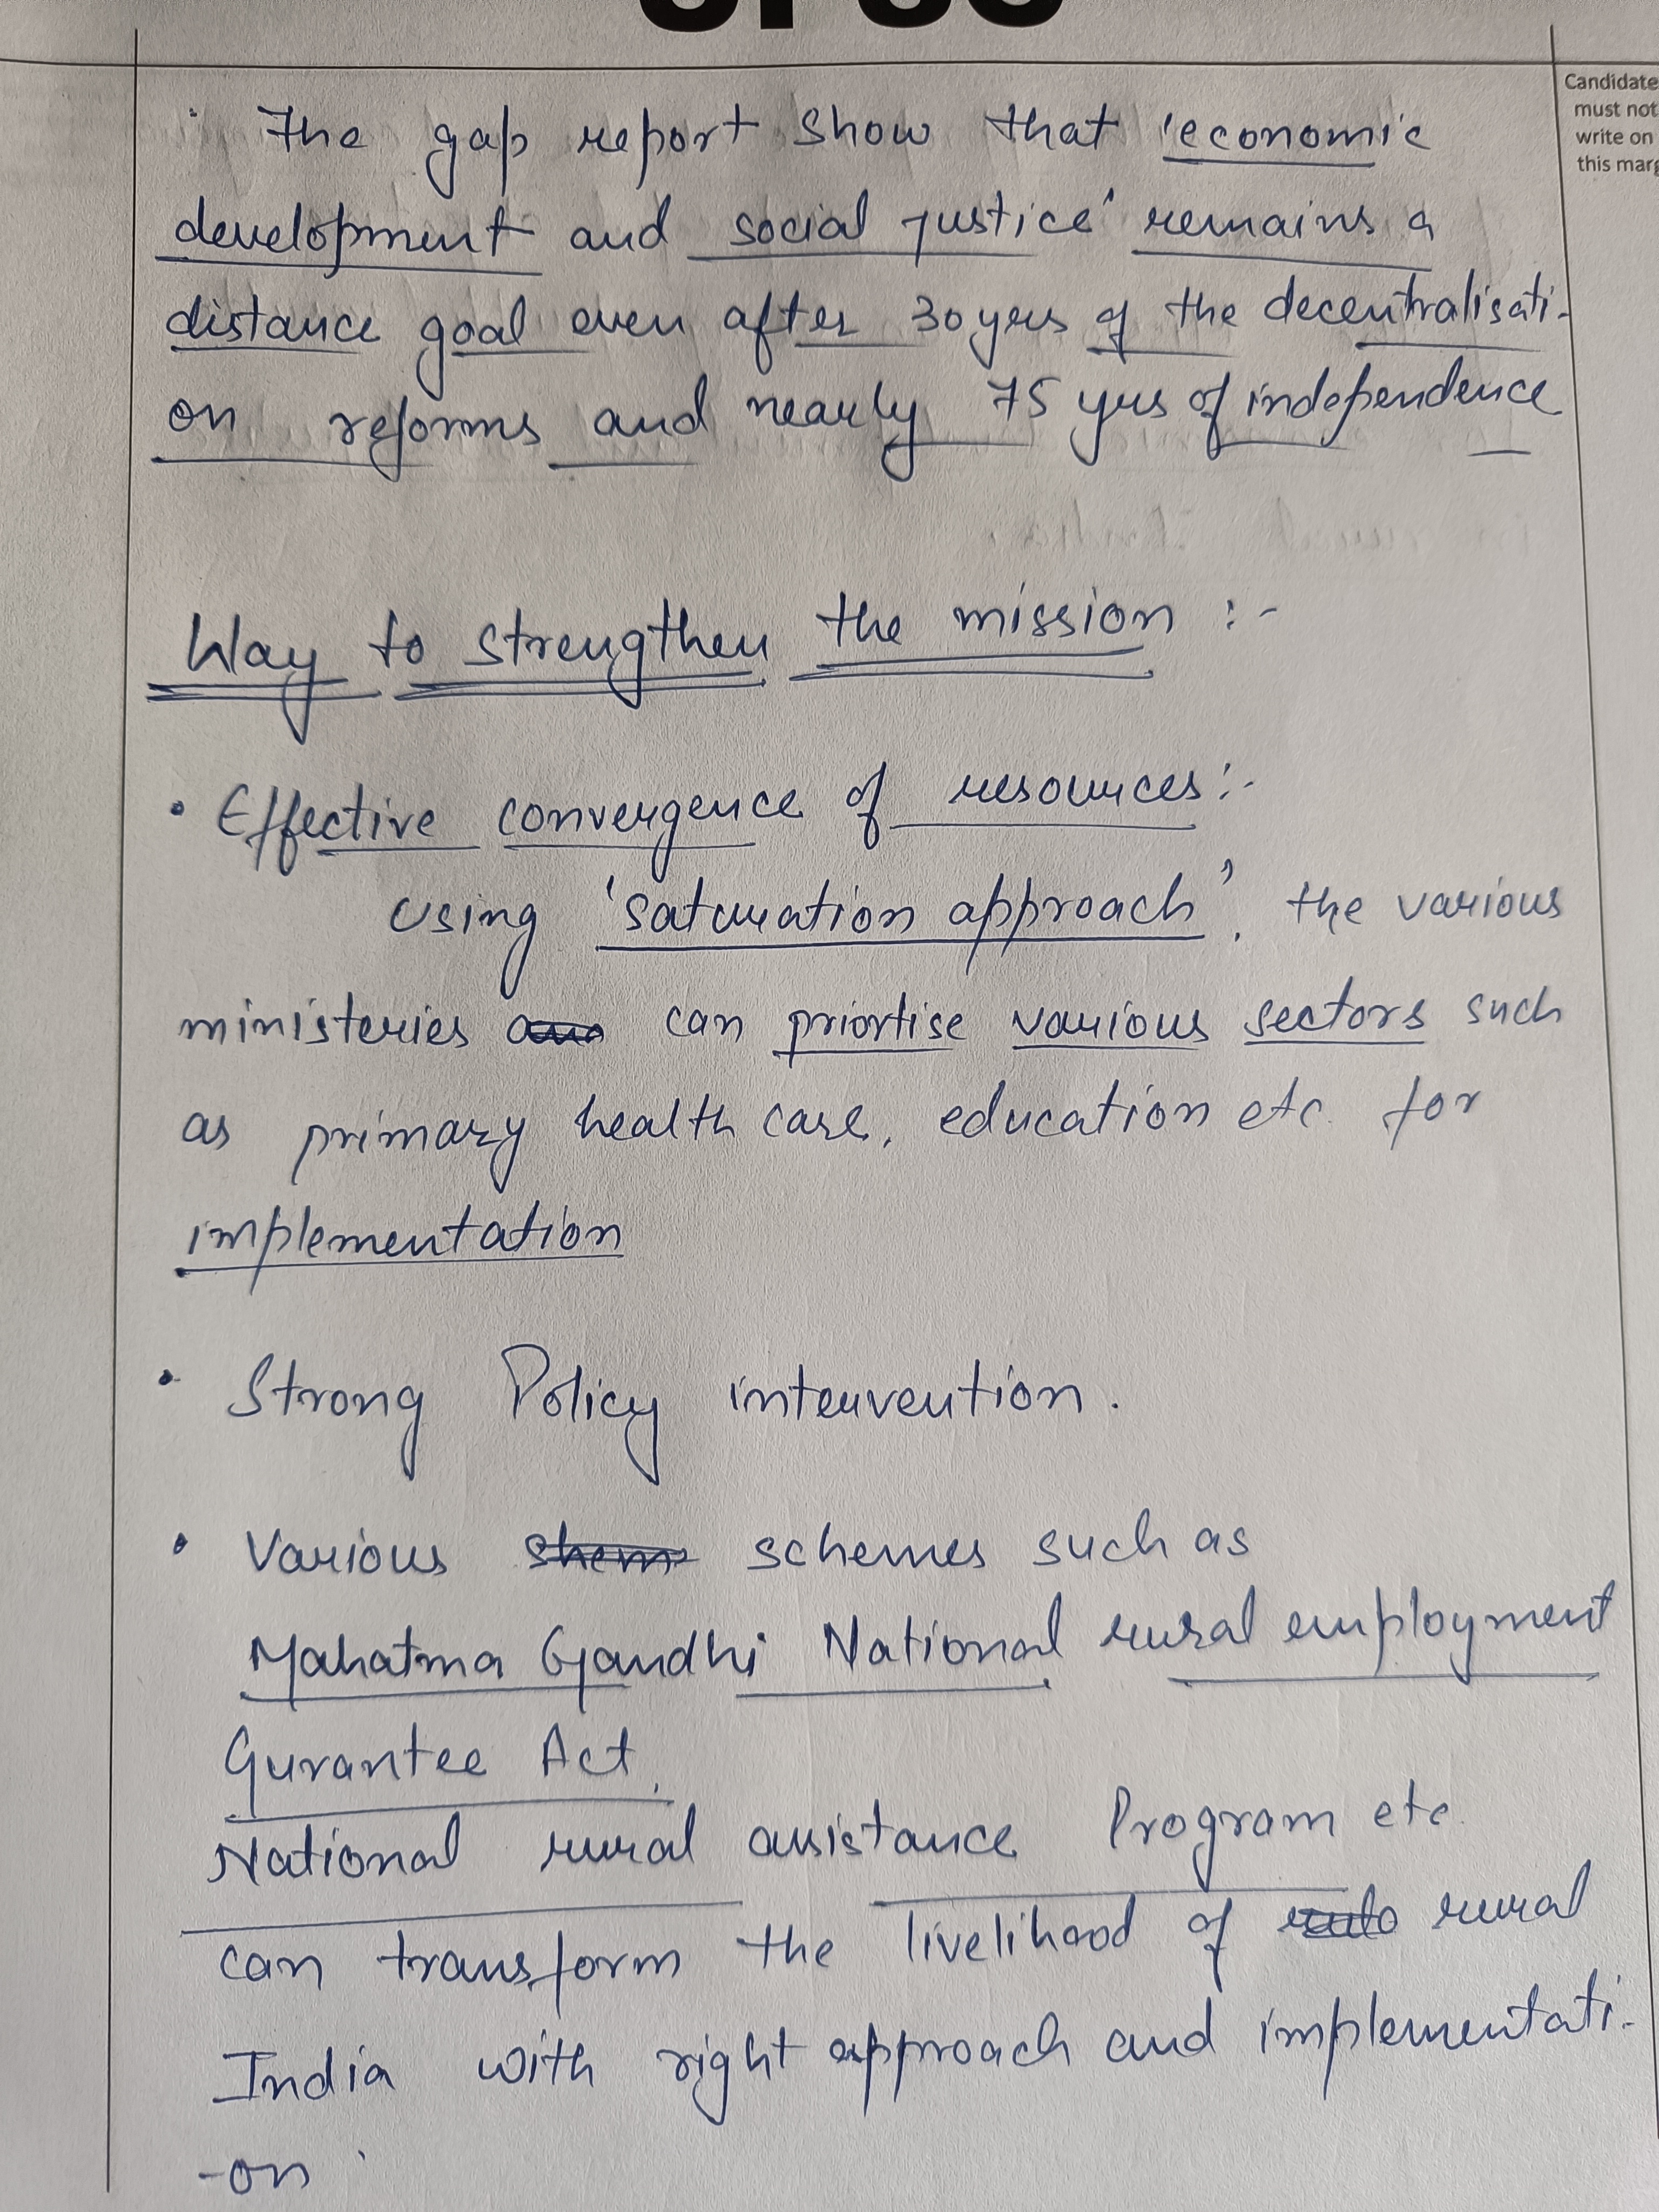 UPSC
Candidate
must not
write on
this marg
• The gap report show that 'economic
development and social justice' remains a
distance goal even after 30 yrs of the decentralisati-
on reforms and nearly 75 yrs of independence
Way to strengthen the mission :-
• Effective convergence of resources :-
Using 'saturation approach', the various
ministeries can priortise various sectors such
as primary health care, education etc. for
implementation
• Strong Policy intervention.
• Various schemes such as
Mahatma Gandhi National rural employment
Gurantee Act,
National rural assistance Program etc.
can transform the livelihood of rural
India with right approach and implementati-
-on.